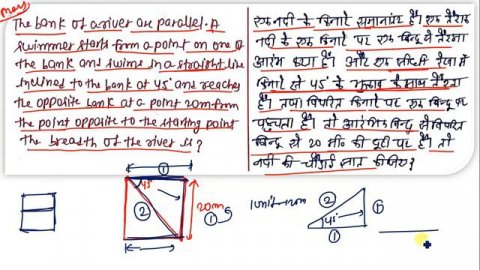 May
The bank of a river are parallel. A
swimmer starts from a point on one of
the bank and swims in a straight line
inclined to the bank at 45° and reaches
the opposite bank at a point 20m from
the point opposite to the starting point
the breadth of the river is?
एक नदी के किनारे समानांतर है। एक तैराक
नदी के एक किनारे पर एक बिन्दु से तैरना
आरंभ करता है। और एक सीधी रेखा में
किनारे से 45° के झुकाव के साथ तैरता
है। तथा विपरित किनारे पर एक बिन्दु पर
पहुचता है। जो आरंभिक बिन्दु से विपरित
बिन्दु से 20 मी० की दूरी पर है। तो
नदी की चौड़ाई ज्ञात कीजिए?
①
45°
②
20m
①
1unit→20m
②
45°
①
①